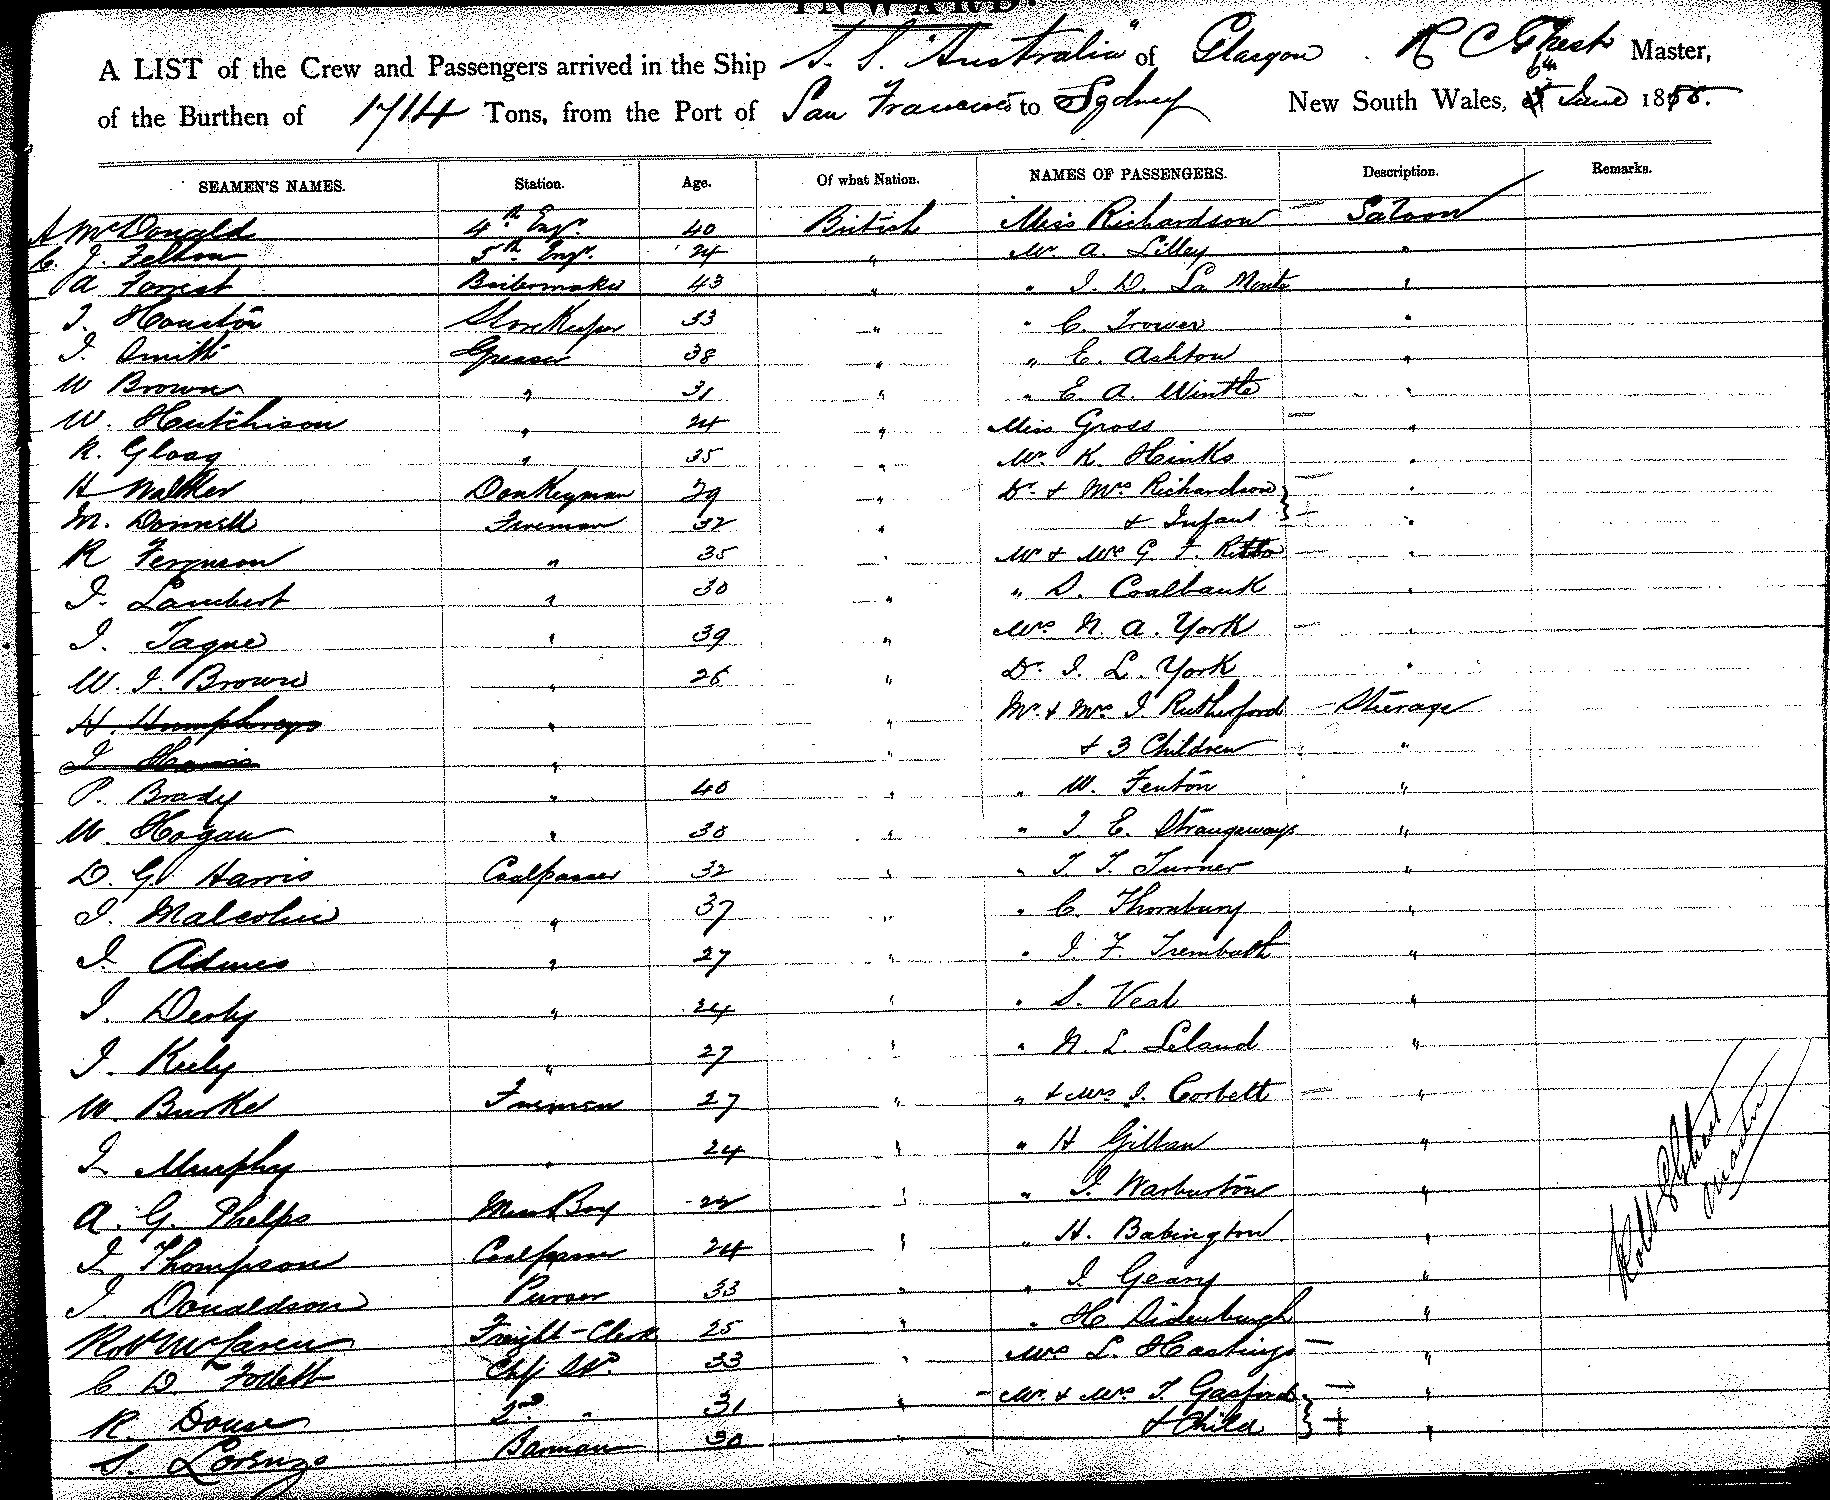 INWARD.
A LIST of the Crew and Passengers arrived in the Ship S. S. "Australia" of Glasgow. R C Ghest Master,
of the Burthen of 1714 Tons, from the Port of San Francisco to Sydney New South Wales, 6th June 188
SEAMEN'S NAMES. Station. Age. Of what Nation. NAMES OF PASSENGERS. Description. Remarks.
A McDonald 4th Engr. 40 British Miss Richardson — Saloon
C. J. Felton 5th Engr. 24 " Mr. A. Lilley "
A Forrest Boilermaker 43 " " J. D. La Monte "
J. Houston Storekeeper 33 " " C. Trower "
J. Smith Greaser 38 " " E. Ashton "
W Brown " 31 " " E. A. Wintle "
W. Hutchison " 24 " Miss Gross — "
R. Gloag " 35 " Mr. K. Hinks "
H Walker Donkeyman 29 " Dr. + Mrs Richardson — "
M. Donnell Fireman 32 " + Infant — "
R Ferguson " 35 " Mr + Mrs G F. — "
J. Lambert " 30 " " S. Coalbank "
J. Tague " 39 " Mrs N. A. York — "
W. J. Brown " 26 " Dr. J. L. York "
H. Humphreys " " Mr. + Mrs J Rutherford — Steerage
J Harris " " + 3 Children "
P. Brady " 40 " " W. Fenton "
W. Hogan " 30 " " J E. Strangeways "
D. G. Harris Coalpasser 32 " " T. T. Turner "
J. Malcolm " 37 " " C. Thornbury "
J. " 27 " " J. F. Trembath "
J. Derby " 24 " " S. Veal "
J. Kiely " 27 " " N. L. Leland "
W. Burke Fireman 27 " " + Mrs J. Corbett — "
J. Murphy " 24 " " H Gillan "
A. G. Phelps Mess Boy 22 " " J. Warburton "
J. Thompson Coalpasser 24 " " H. Babington "
J. Donaldson Purser 33 " " J Geary "
Robt McLaren Freight-Clerk 25 " " H "
C D Chf St. 33 " Mrs L. Hastings — "
R. Douse 2nd " 31 " - Mr. + Mrs T. Gasford — "
S. Lorenzo Barman 30 " + Child + "
Robt Ghest
Master